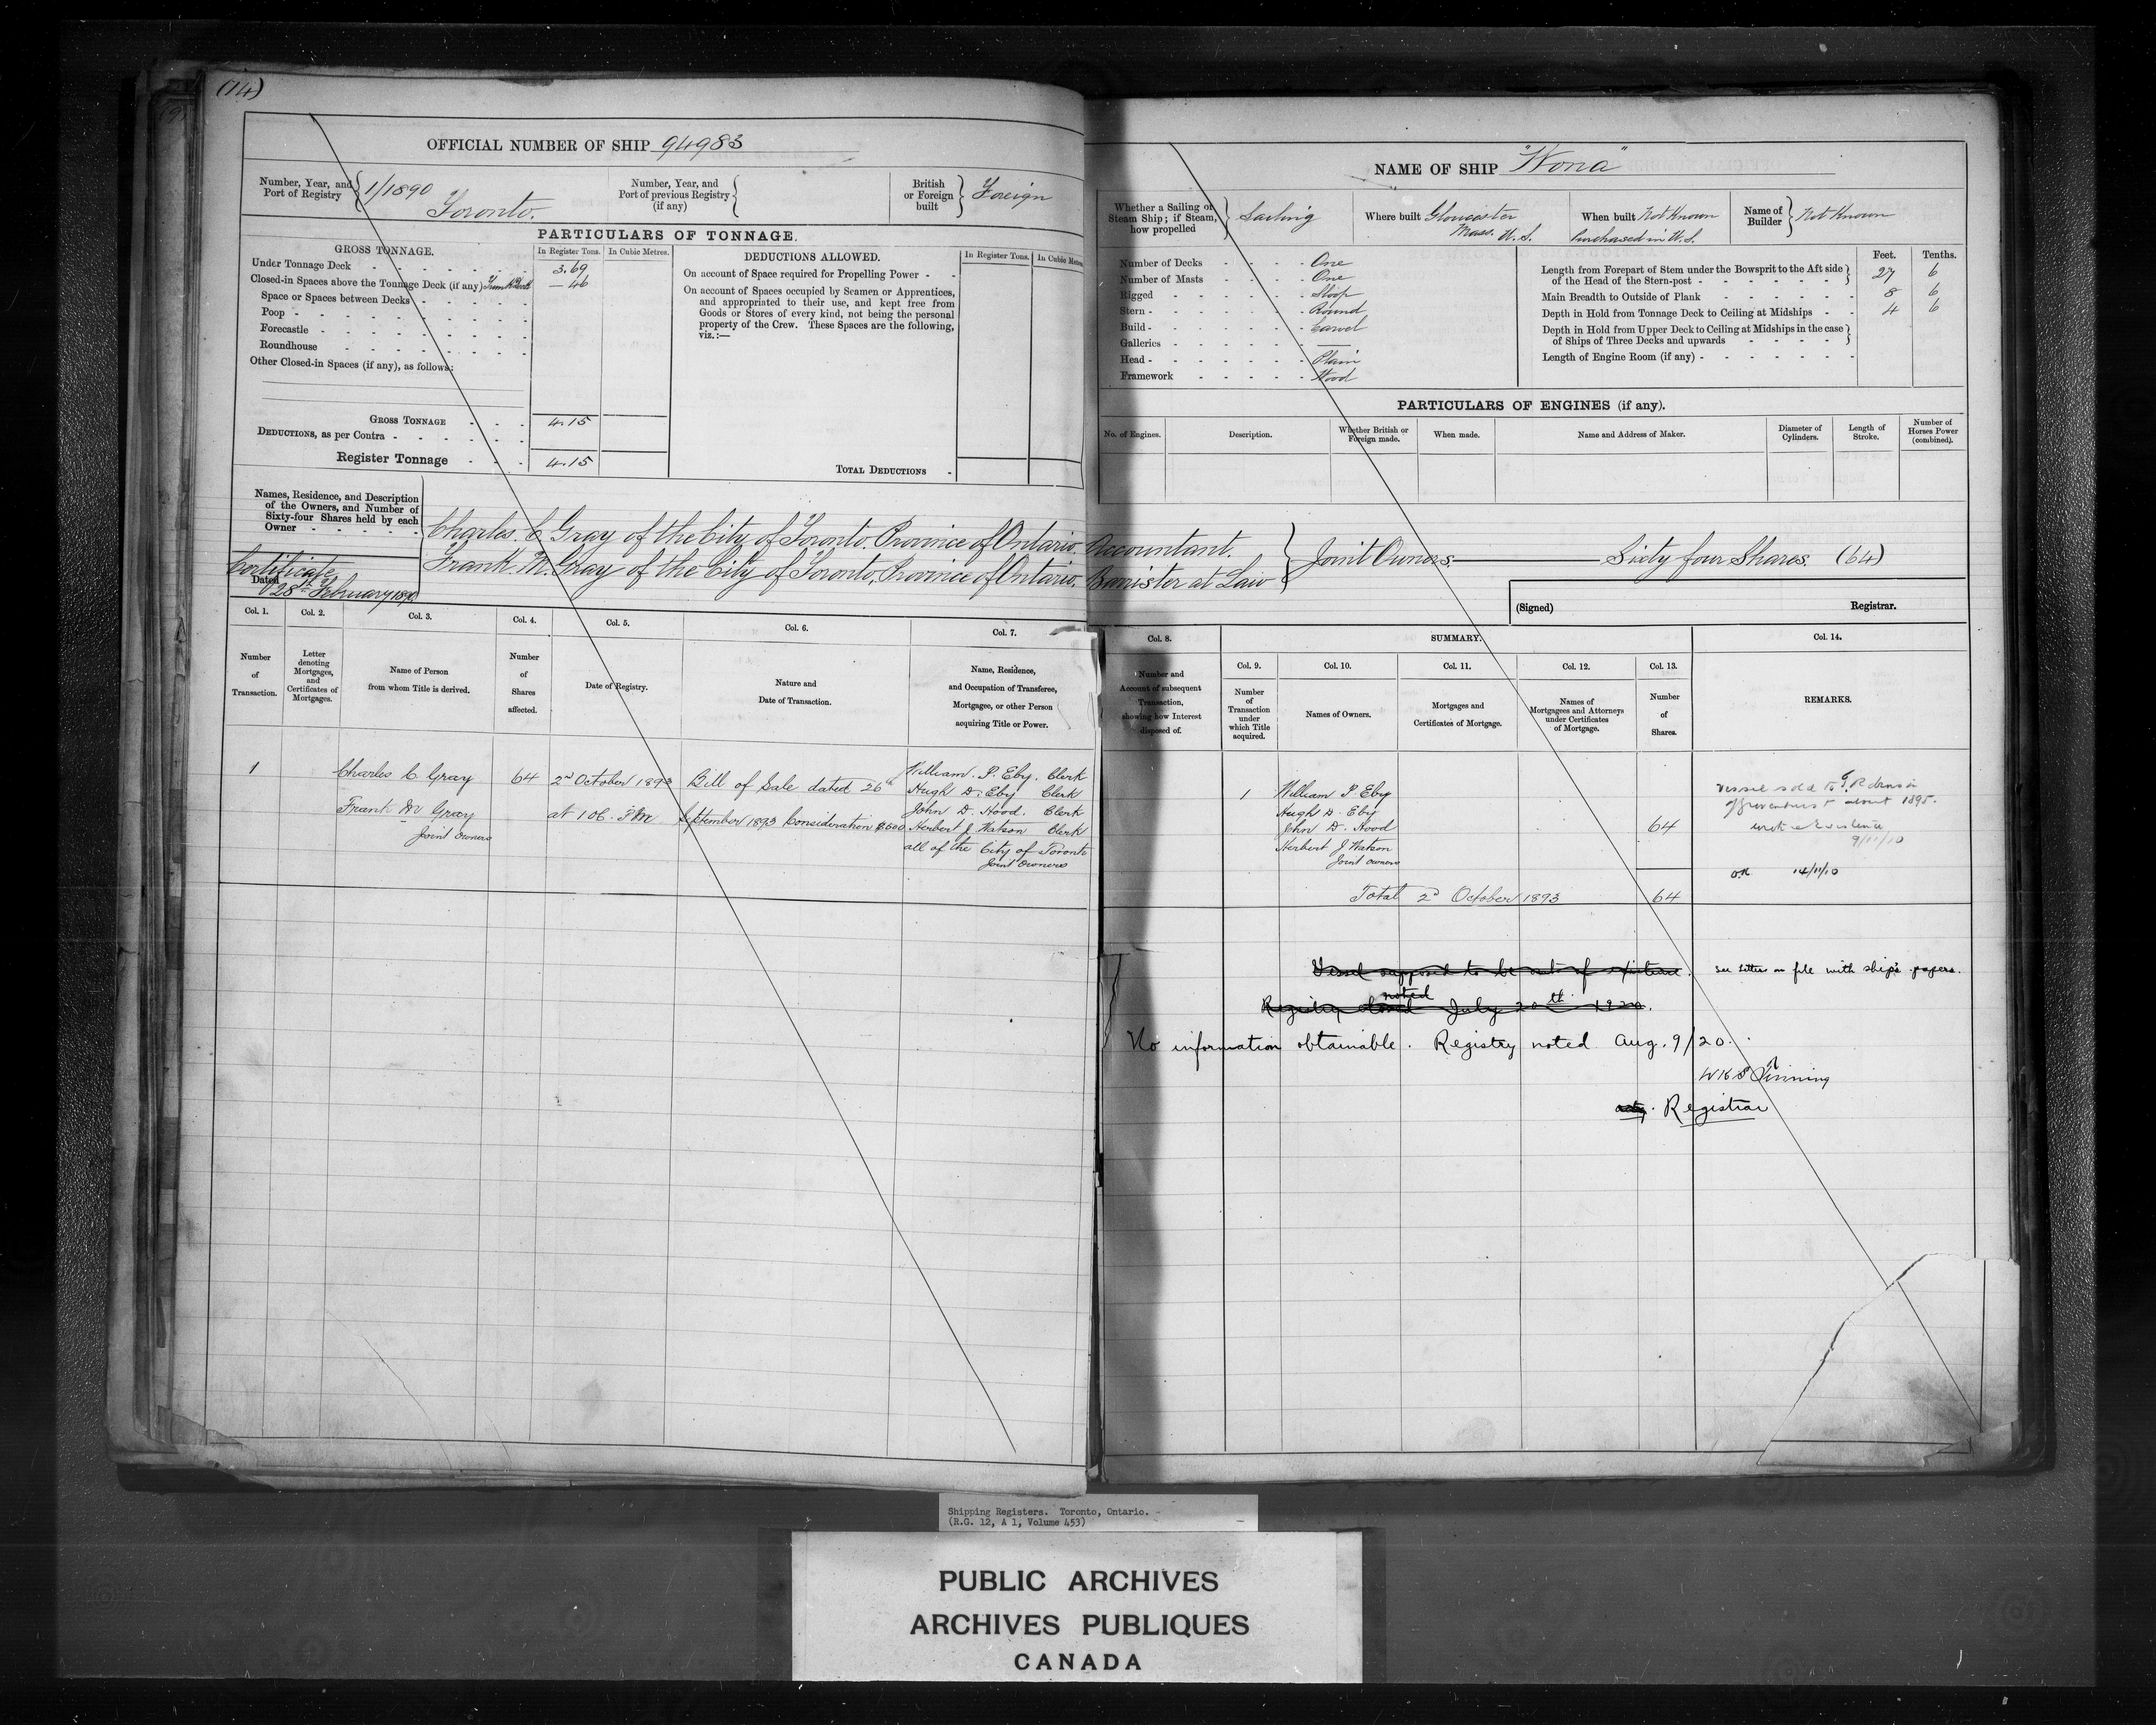 (14)
OFFICIAL NUMBER OF SHIP 94983
Number, Year, and Port of Registry 1/1890 Toronto.
Number, Year, and Port of previous Registry (if any)
British or Foreign built Foreign
PARTICULARS OF TONNAGE.
GROSS TONNAGE.
In Register Tons.
In Cubic Metres.
Under Tonnage Deck 3.69
Closed-in Spaces above the Tonnage Deck (if any) — 46
Space or Spaces between Decks
Poop
Forecastle
Roundhouse
Other Closed-in Spaces (if any), as follows:
GROSS TONNAGE 4.15
DEDUCTIONS, as per Contra
Register Tonnage 4.15
DEDUCTIONS ALLOWED.
In Register Tons.
In Cubic Metres
On account of Space required for Propelling Power
On account of Spaces occupied by Seamen or Apprentices,
and appropriated to their use, and kept free from
Goods or Stores of every kind, not being the personal
property of the Crew. These Spaces are the following,
viz.:—
TOTAL DEDUCTIONS
NAME OF SHIP "Wona"
Whether a Sailing or Steam Ship; if Steam, how propelled Sailing
Where built Gloucester Mass. U.S.
When built Not Known Purchased in U.S.
Name of Builder Not Known
Number of Decks One
Number of Masts One
Rigged Sloop
Stern Round
Build Carvel
Galleries —
Head Plain
Framework Wood
Feet. Tenths.
Length from Forepart of Stem under the Bowsprit to the Aft side
of the Head of the Stern-post 27 6
Main Breadth to Outside of Plank 8 6
Depth in Hold from Tonnage Deck to Ceiling at Midships 4 6
Depth in Hold from Upper Deck to Ceiling at Midships in the case
of Ships of Three Decks and upwards
Length of Engine Room (if any)
PARTICULARS OF ENGINES (if any).
No. of Engines.
Description.
Whether British or Foreign made.
When made.
Name and Address of Maker.
Diameter of Cylinders.
Length of Stroke.
Number of Horses Power (combined).
Names, Residence, and Description
of the Owners, and Number of
Sixty-four Shares held by each
Owner
Charles. C Gray of the City of Toronto. Province of Ontario. Accountant.
Frank. M. Gray of the City of Toronto, Province of Ontario. Barrister at Law
Joint Owners. Sixty four Shares. (64)
Certificate
Dated 28th February 1890
(Signed) Registrar.
Col. 1. Number of Transaction.
Col. 2. Letter denoting Mortgages, and Certificates of Mortgages.
Col. 3. Name of Person from whom Title is derived.
Col. 4. Number of Shares affected.
Col. 5. Date of Registry.
Col. 6. Nature and Date of Transaction.
Col. 7. Name, Residence, and Occupation of Transferee, Mortgagee, or other Person acquiring Title or Power.
Col. 8. Number and Account of subsequent Transaction, showing how Interest disposed of.
SUMMARY.
Col. 9. Number of Transaction under which Title acquired.
Col. 10. Names of Owners.
Col. 11. Mortgages and Certificates of Mortgage.
Col. 12. Names of Mortgagees and Attorneys under Certificates of Mortgage.
Col. 13. Number of Shares.
Col. 14. REMARKS.
1
Charles C Gray
Frank M Gray
Joint Owners
64
2nd October 1893
at 1.06. P.M
Bill of Sale dated 26th
September 1893 Consideration $600
William. P. Eby. Clerk
Hugh D. Eby Clerk
John D. Hood. Clerk
Herbert J Watson Clerk
all of the City of Toronto
Joint Owners
1
William P Eby
Hugh D. Eby
John D. Hood
Herbert J Watson
Joint Owners
64
Total 2nd October 1893 64
Vessel sold to
about 1895.
9/11/10
OK 14/11/10
Vessel supposed to be out of existence.
See letters on file with ship's papers.
noted
Registry closed July 20th 1920.
No information obtainable. Registry noted Aug. 9/20.
Registrar
Shipping Registers. Toronto, Ontario.
(R.G. 12, A 1, Volume 453)
PUBLIC ARCHIVES
ARCHIVES PUBLIQUES
CANADA